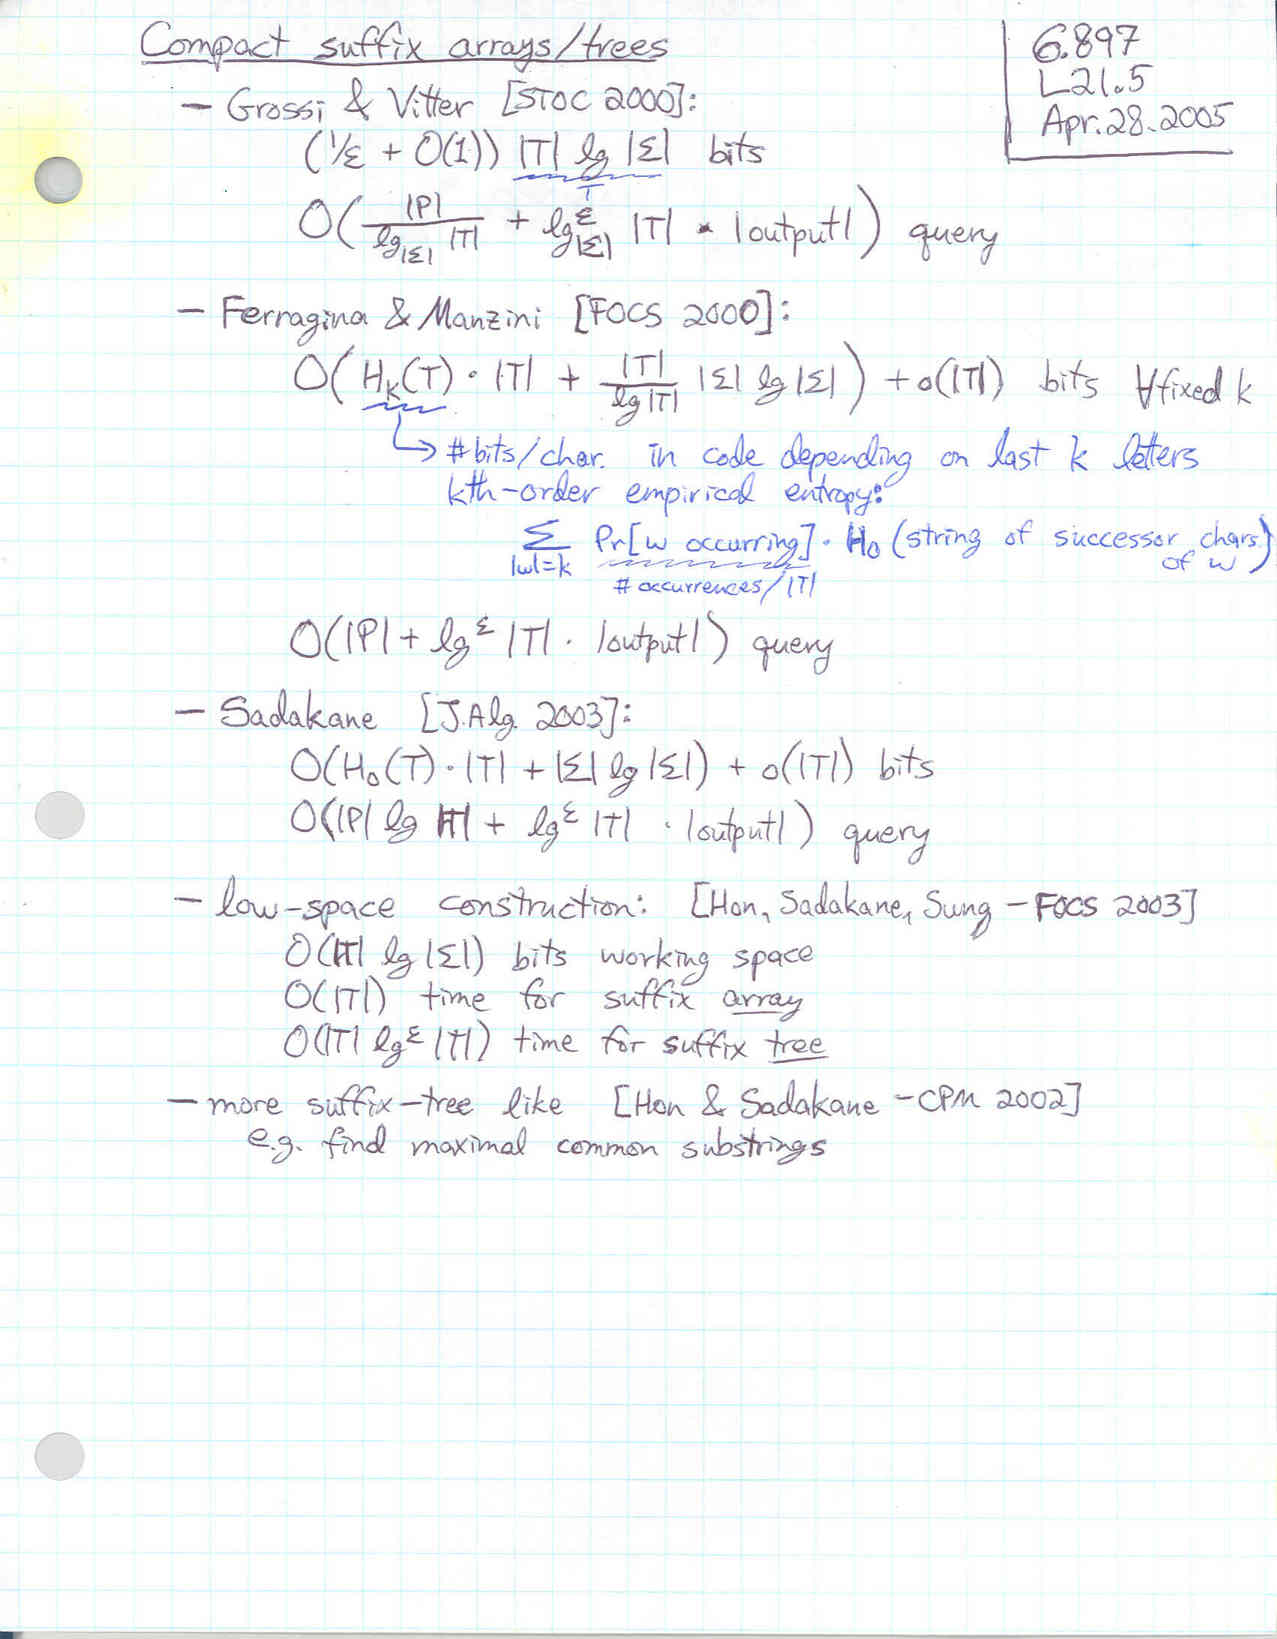 Compact suffix arrays/trees
6.897
L21.5
Apr.28.2005
– Grossi & Vitter [STOC 2000]:
(1/ε + O(1)) |T| lg |Σ| bits
T
O(|P|/lg_|Σ| |T| + lg^ε_|Σ| |T| · |output|) query
– Ferragina & Manzini [FOCS 2000]:
O(H_k(T) · |T| + |T|/lg|T| |Σ| lg |Σ|) + o(|T|) bits ∀fixed k
↳ #bits/char. in code depending on last k letters
kth-order empirical entropy:
Σ_|w|=k Pr[w occurring] · H_0 (string of successor chars. of w)
# occurrences/|T|
O(|P| + lg^ε |T| · |output|) query
– Sadakane [J.Alg. 2003]:
O(H_0(T) · |T| + |Σ| lg |Σ|) + o(|T|) bits
O(|P| lg |T| + lg^ε |T| · |output|) query
– low-space construction: [Hon, Sadakane, Sung – FOCS 2003]
O(|T| lg |Σ|) bits working space
O(|T|) time for suffix array
O(|T| lg^ε |T|) time for suffix tree
– more suffix-tree like [Hon & Sadakane – CPM 2002]
e.g. find maximal common substrings